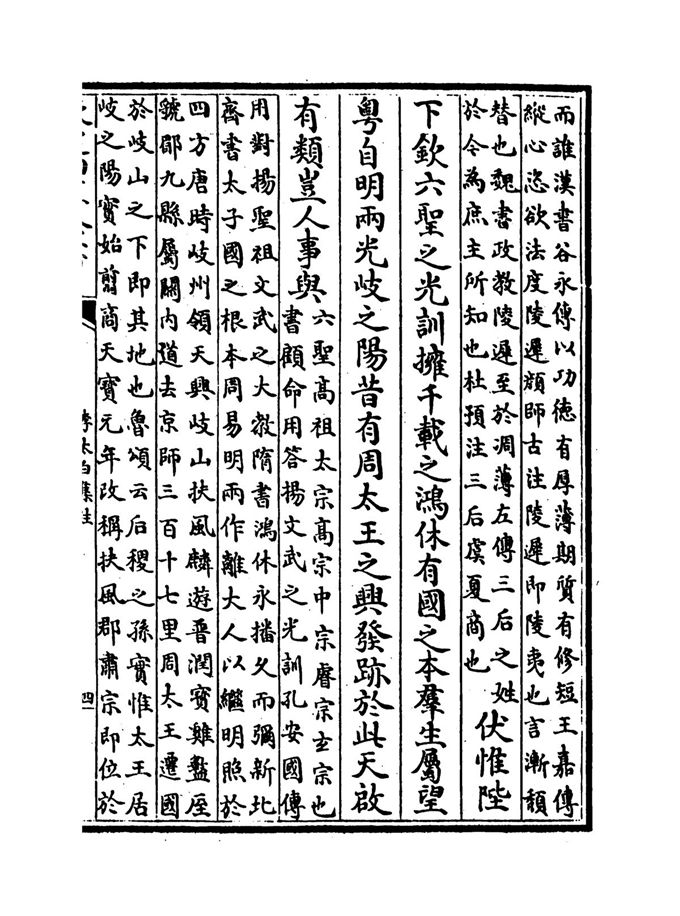 而誰漢書谷永傳以功徳有厚薄期質有修短王嘉傳
縱心恣欲法度陵遲顔師古注陵遲即陵夷也言漸頽
替也魏書政教陵遲至於凋薄左傳三后之姓
於今為庶主所知也杜預注三后虞夏商也
伏惟陛
下欽六聖之光訓擁千載之鴻休有國之本羣生屬望
粤自明兩光岐之陽昔有周太王之興發跡於此天啟
有類豈人事與
六聖高祖太宗高宗中宗睿宗玄宗也
書顧命用答揚文武之光訓孔安國傳
用對揚聖祖文武之大教隋書鴻休永播久而彌新北
齊書太子國之根本周易明兩作離大人以繼明照於
四方唐時岐州領天興岐山扶風麟遊普潤寳雞盩厔
虢郿九縣屬關内道去京師三百十七里周太王遷國
於岐山之下即其地也魯頌云后稷之孫實惟太王居
岐之陽實始翦商天寳元年改稱扶風郡肅宗即位於
李太白集注
四